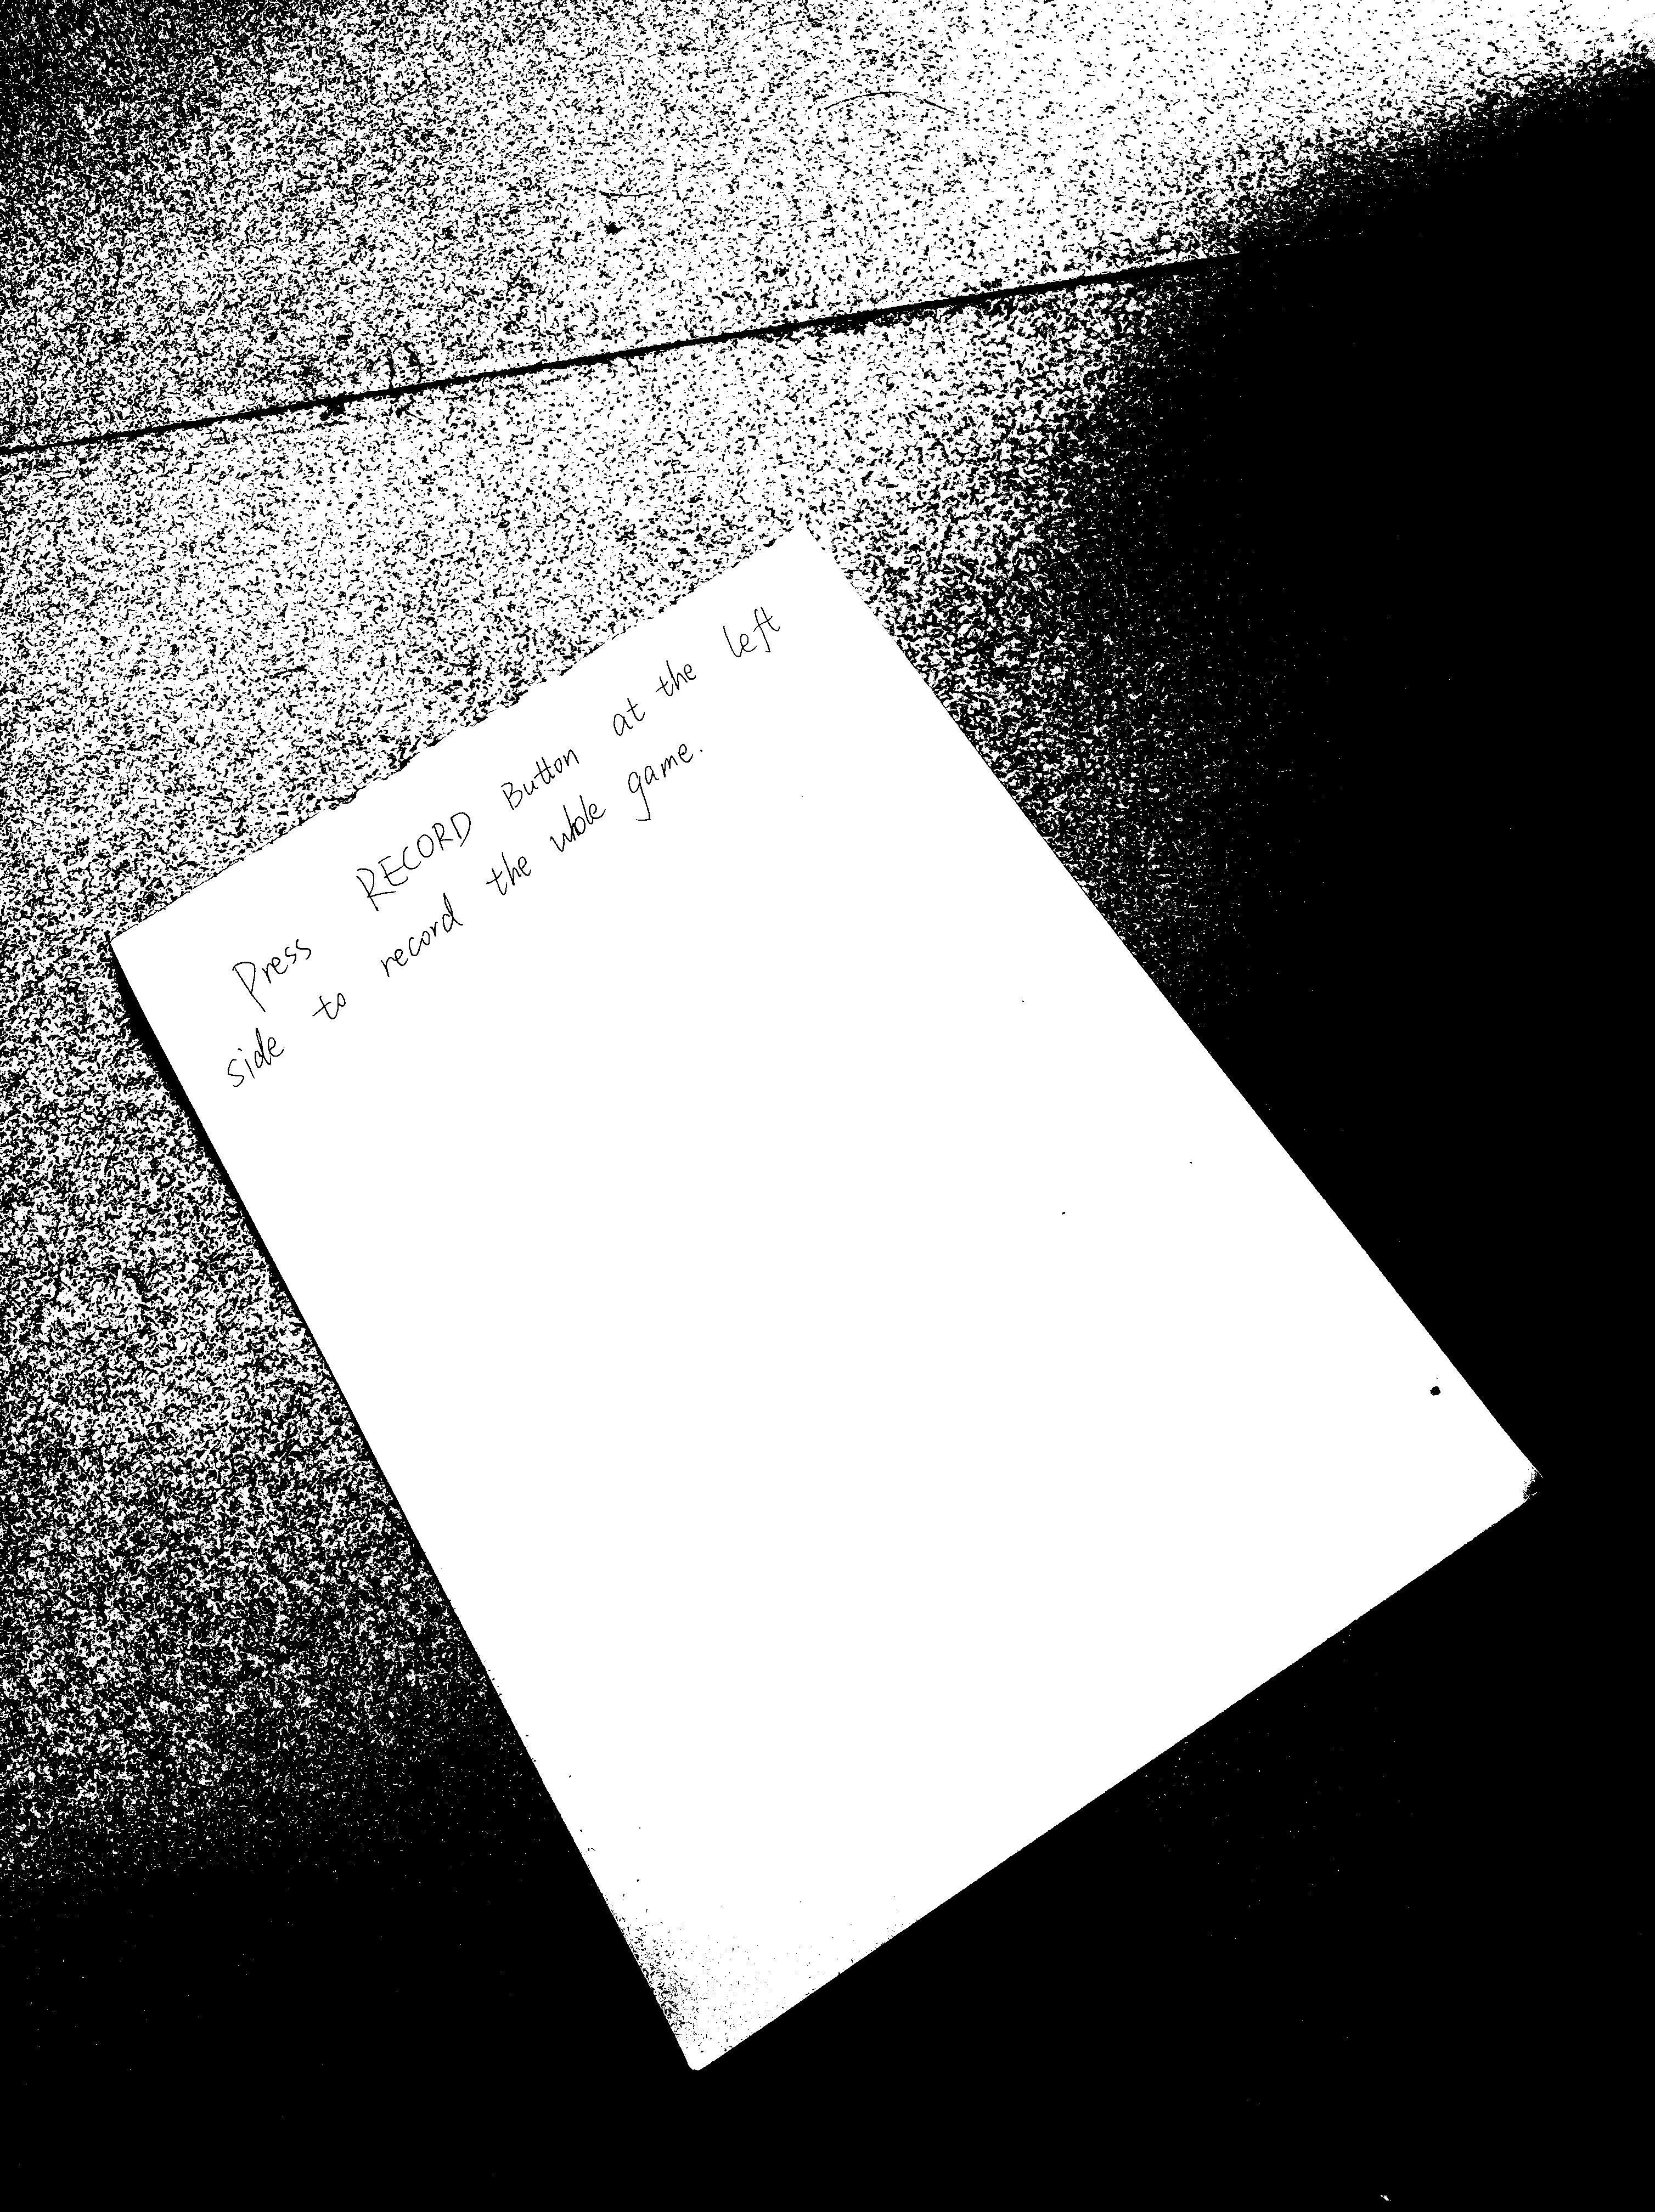 Press RECORD Button at the left
side to record the whole game.